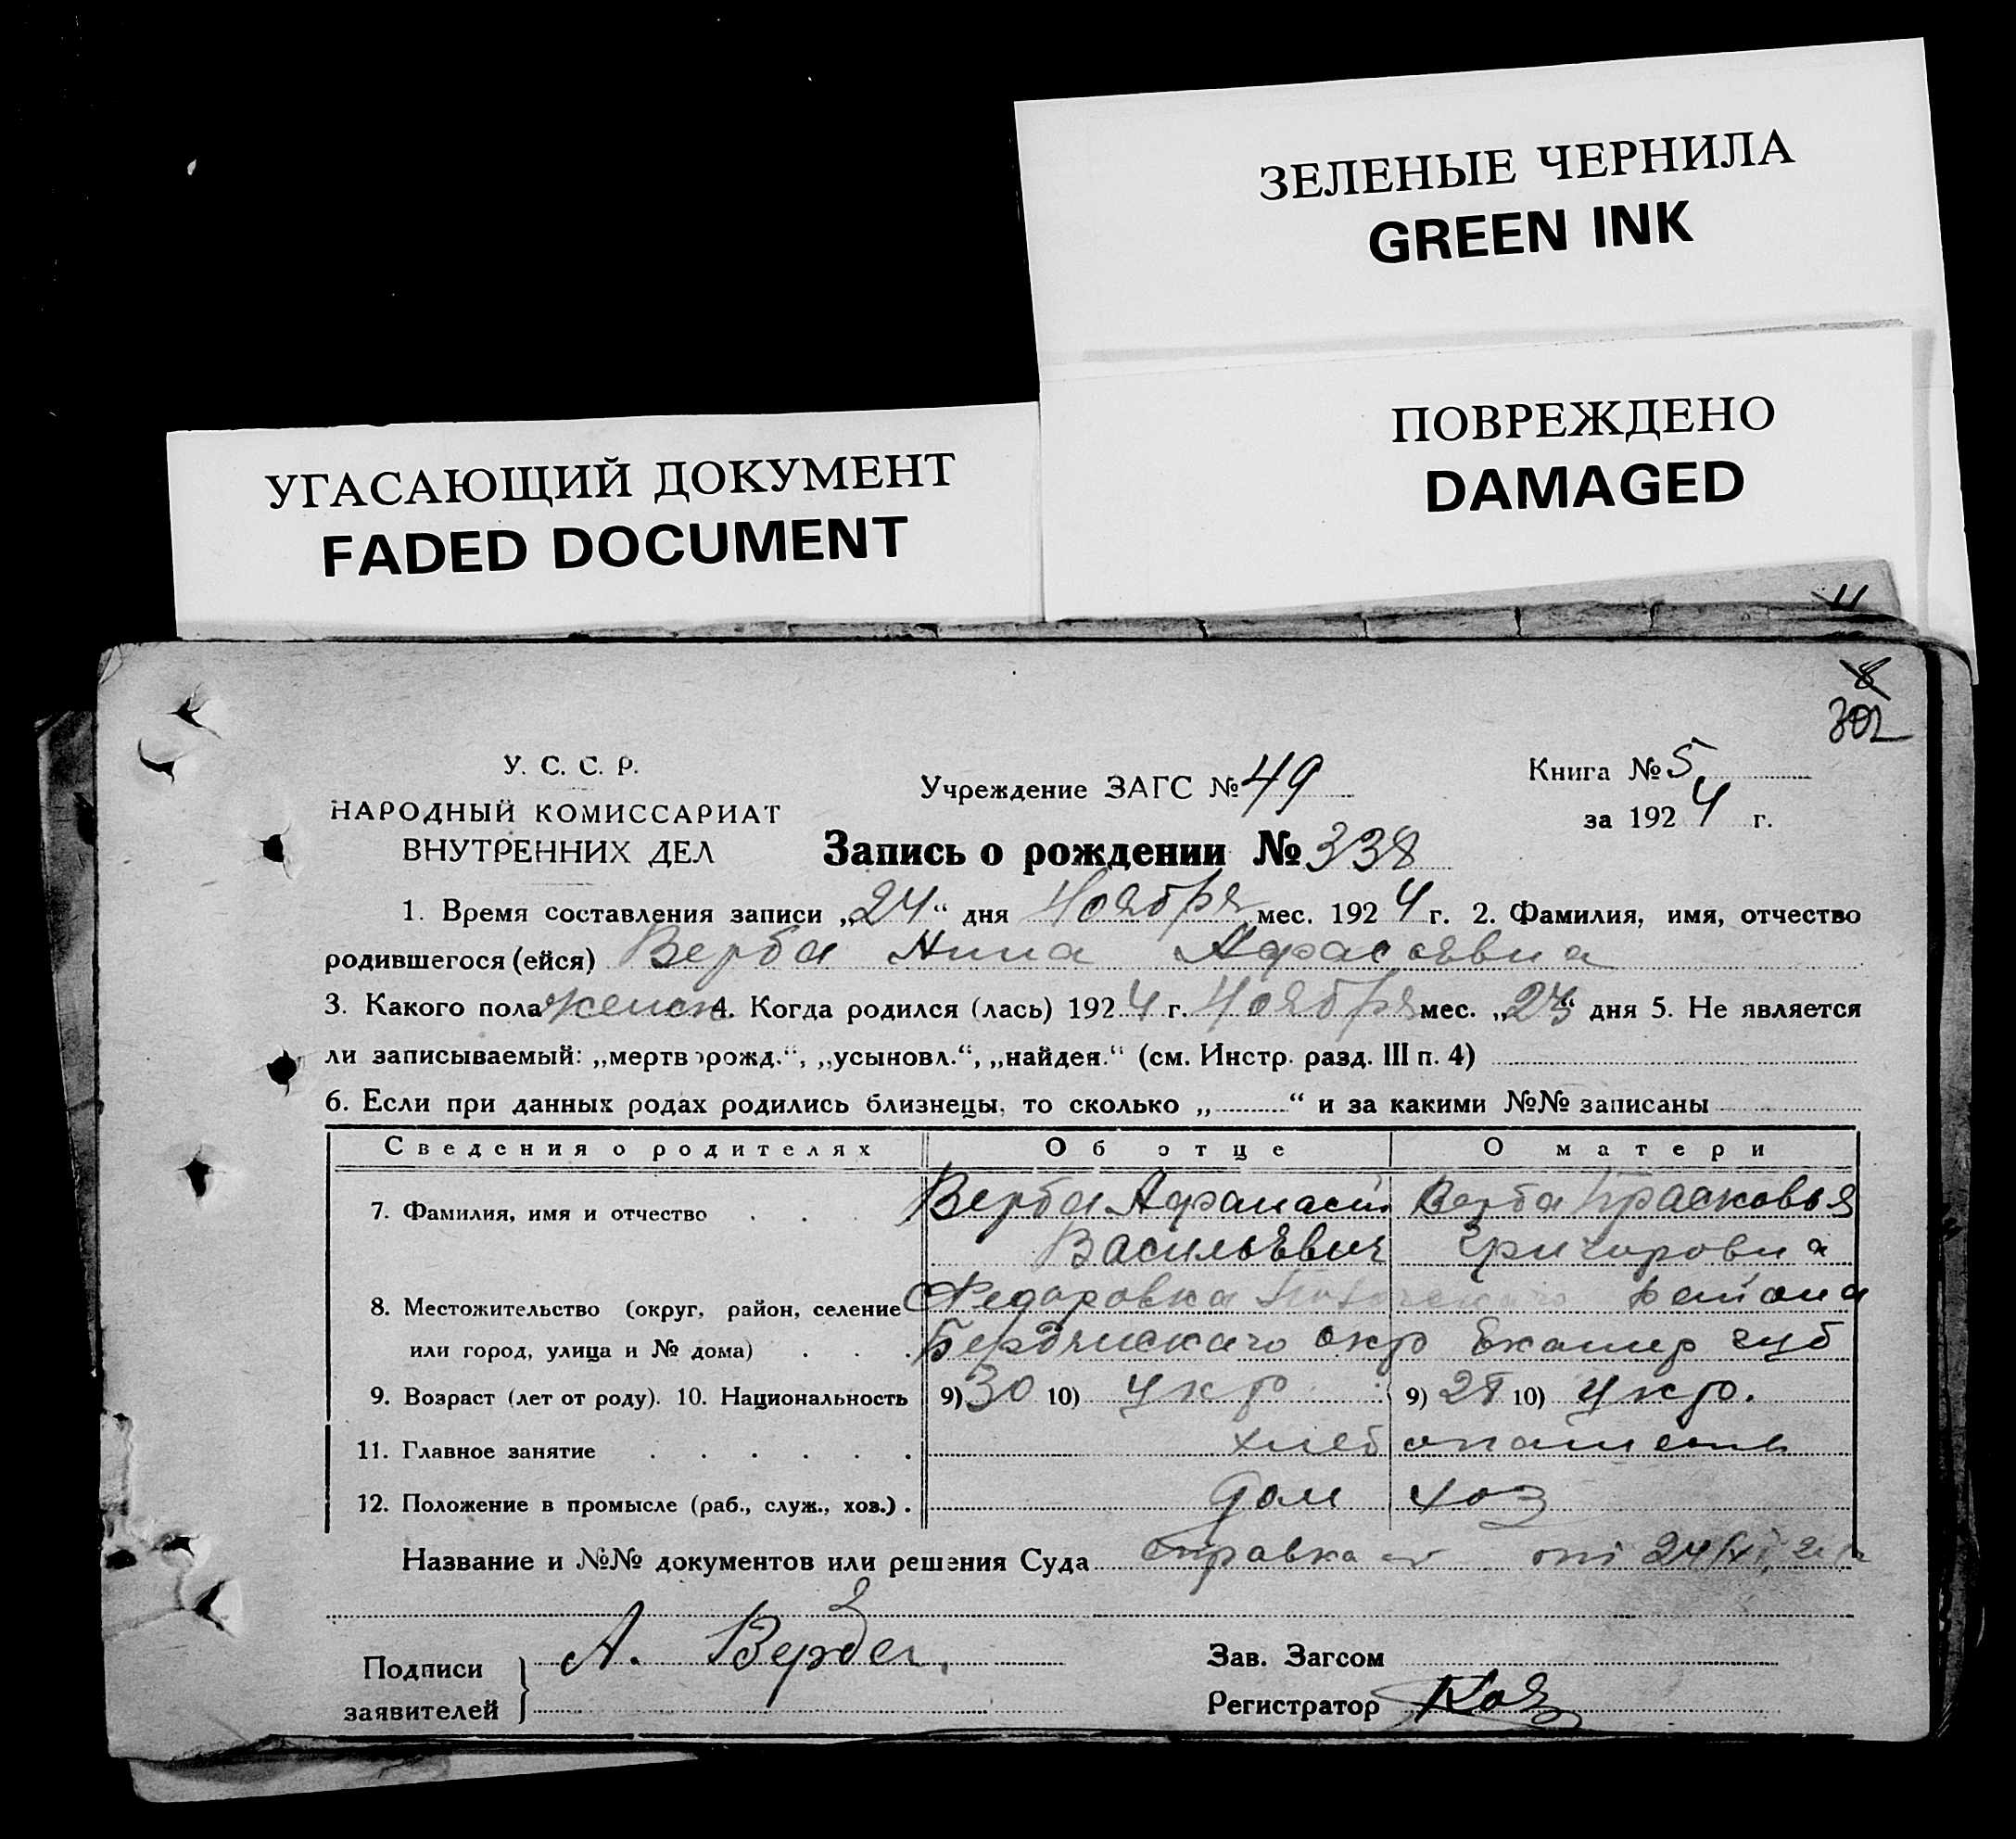 ЗЕЛЕНЫЕ ЧЕРНИЛА
GREEN INK
ПОВРЕЖДЕНО
DAMAGED
УГАСАЮЩИЙ ДОКУМЕНТ
FADED DOCUMENT
11
8
302
У. С. С. Р.
НАРОДНЫЙ КОМИССАРИАТ
ВНУТРЕННИХ ДЕЛ
Учреждение ЗАГС № 49
Книга № 5
за 1924 г.
Запись о рождении № 338
1. Время составления записи „24“ дня Ноября мес. 1924 г. 2. Фамилия, имя, отчество
родившегося (ейся) Верба Нина Афанасьевна
3. Какого пола женск 4. Когда родился (лась) 1924 г. Ноября мес. „23“ дня 5. Не является
ли записываемый: „мертворожд.“, „усыновл.“, „найден.“ (см. Инстр. разд. III п. 4)
6. Если при данных родах родились близнецы, то сколько „ “ и за какими №№ записаны
Сведения о родителях Об отце О матери
7. Фамилия, имя и отчество Верба Афанасий Верба Прасковья
Васильевич Григоровна
8. Местожительство (округ, район, селение Федоровка района
или город, улица и № дома) Бердянскаго окр Екатер губ
9. Возраст (лет от роду). 10. Национальность 9) 30 10) укр 9) 28 10) укр.
11. Главное занятие хлебопашець
12. Положение в промысле (раб., служ., хоз.) дом хоз
Название и №№ документов или решения Суда справка от 24/XI
Подписи заявителей А. Верба.
Зав. Загсом
Регистратор